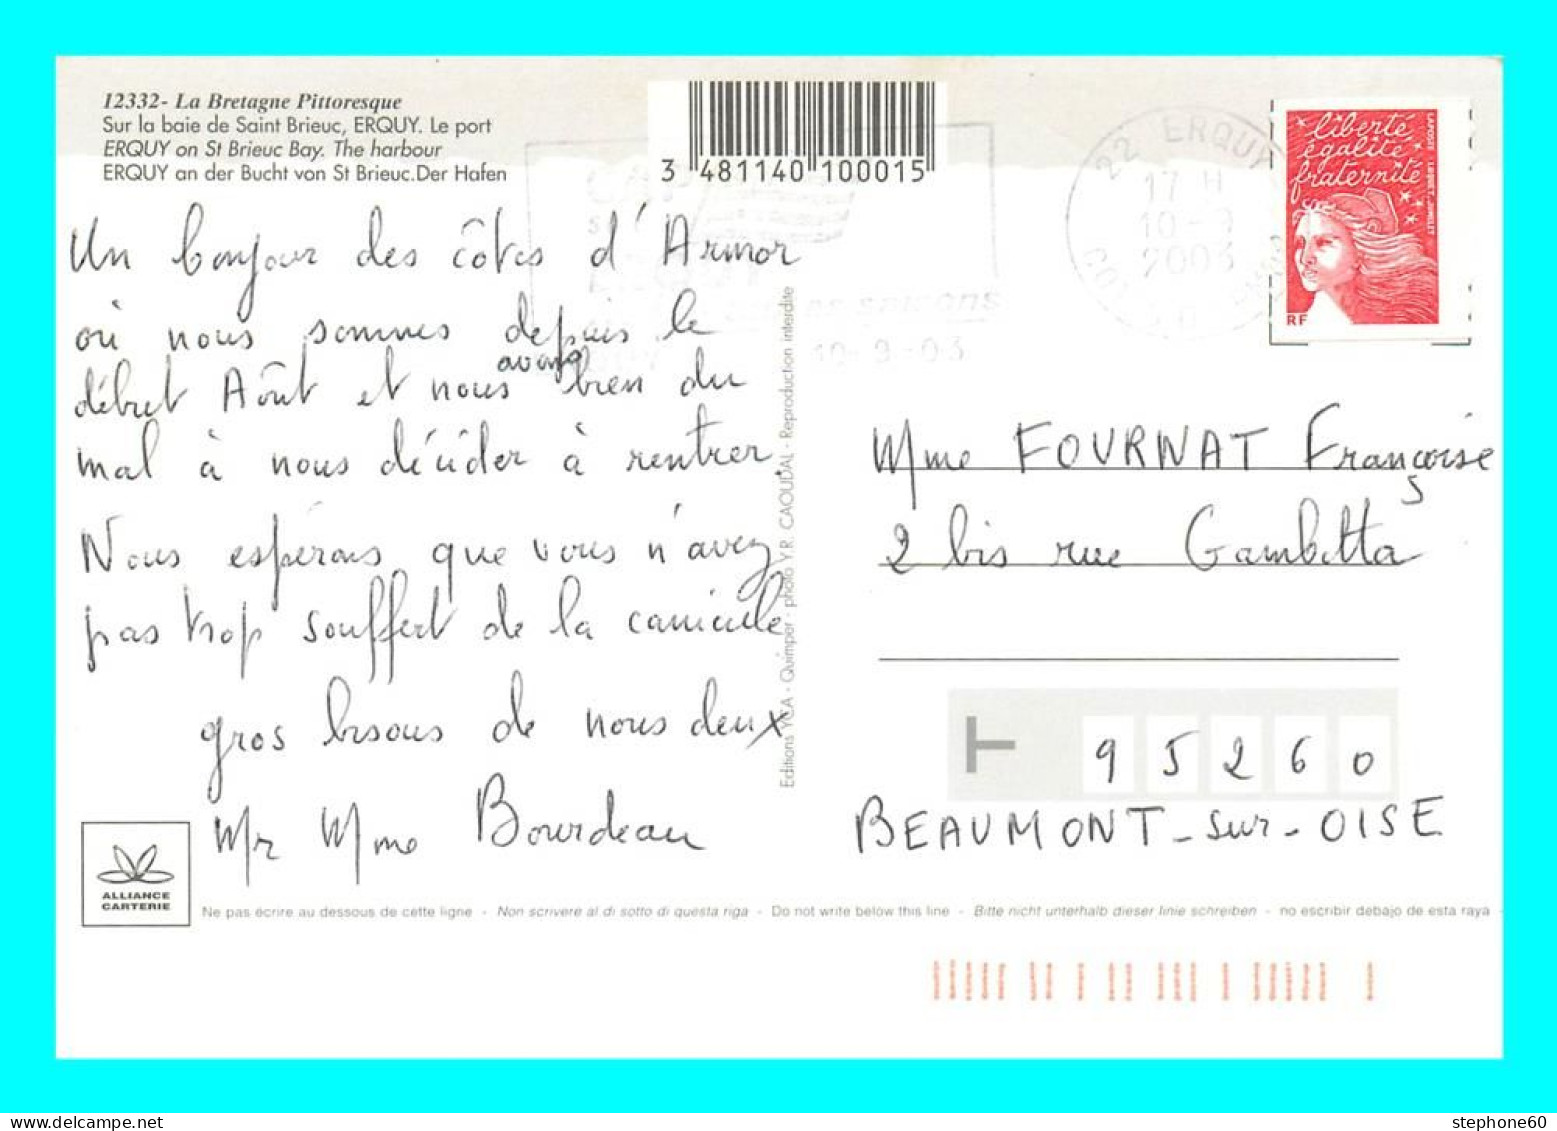 12332- La Bretagne Pittoresque
Sur la baie de Saint Brieuc, ERQUY. Le port
ERQUY on St Brieuc Bay. The harbour
ERQUY an der Bucht von St Brieuc.Der Hafen
3 481140 100015
22 ERQUY
17 H
10-9
2003
10-9-03
liberté
égalité
fraternité
RF
Un bonjour des côtes d'Armor
où nous sommes depuis le
début Août et nous avons bien du
mal à nous décider à rentrer.
Nous espérons que vous n'avez
pas trop souffert de la canicule
gros bisous de nous deux
Mr Mme Bourdeau
Editions YCA - Quimper - photo Y.R. CAOUDAL - Reproduction interdite
Mme FOURNAT Françoise
2 bis rue Gambetta
95260
BEAUMONT-sur-OISE
ALLIANCE
CARTERIE
Ne pas écrire au dessous de cette ligne - Non scrivere al di sotto di questa riga - Do not write below this line - Bitte nicht unterhalb dieser linie schreiben - no escribir debajo de esta raya
stephone60